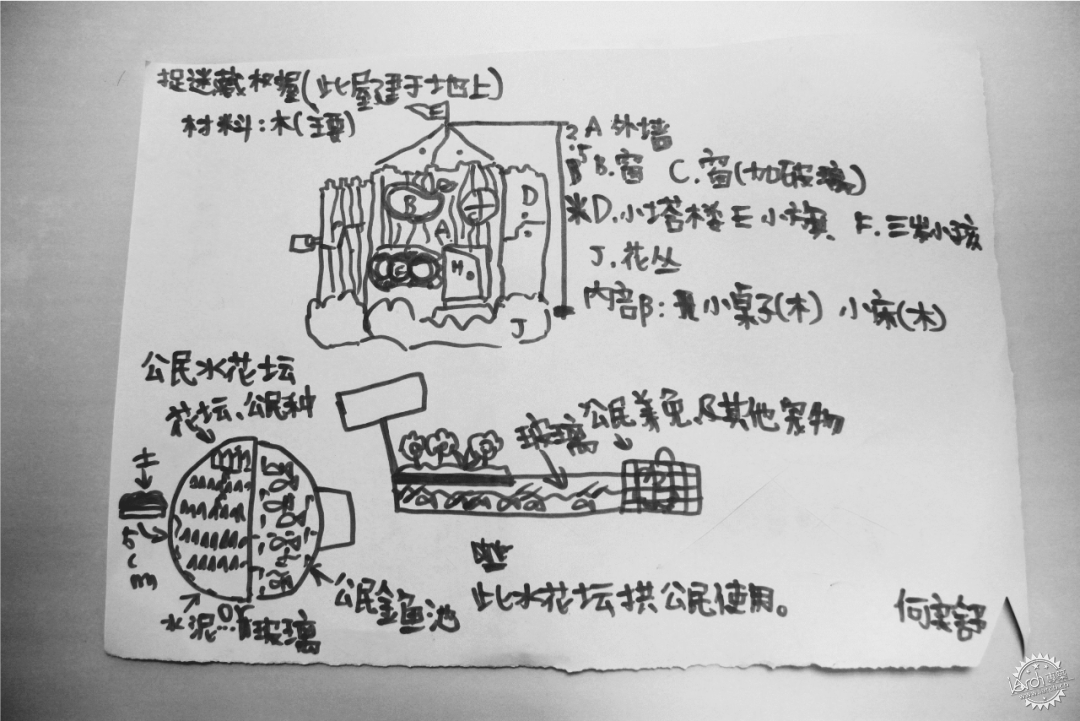 捉迷藏树屋(此屋建于地上)
材料：木(主要)
2.5米
A 外墙
B.窗 C.窗(加玻璃)
D.小塔楼 E 小旗 F.三岁小孩
J.花丛
内部：小桌子(木) 小床(木)
E
B
C
D
A
C
M
J
公民水花坛
花坛、公民种
土
5cm
水泥…or玻璃
公民金鱼池
玻璃
公民养兔及其他宠物
此水花坛拱公民使用。